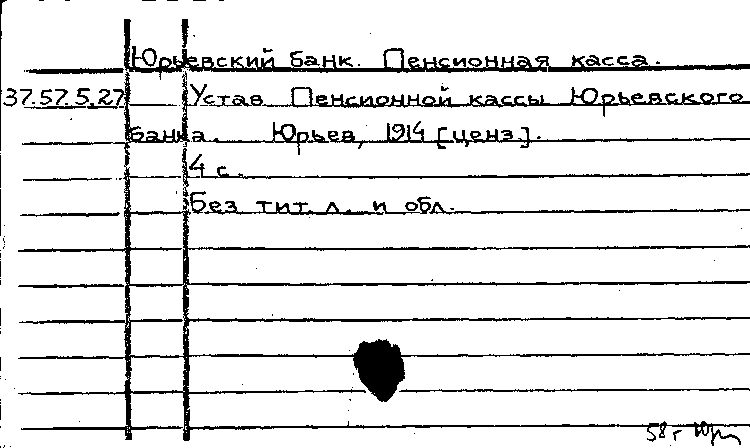 Юрьевский банк. Пенсионная касса.
37.57.5.27 Устав Пенсионной кассы Юрьевского
банка. Юрьев, 1914 [ценз].
4 с.
Без тит. л. и обл.
58 г